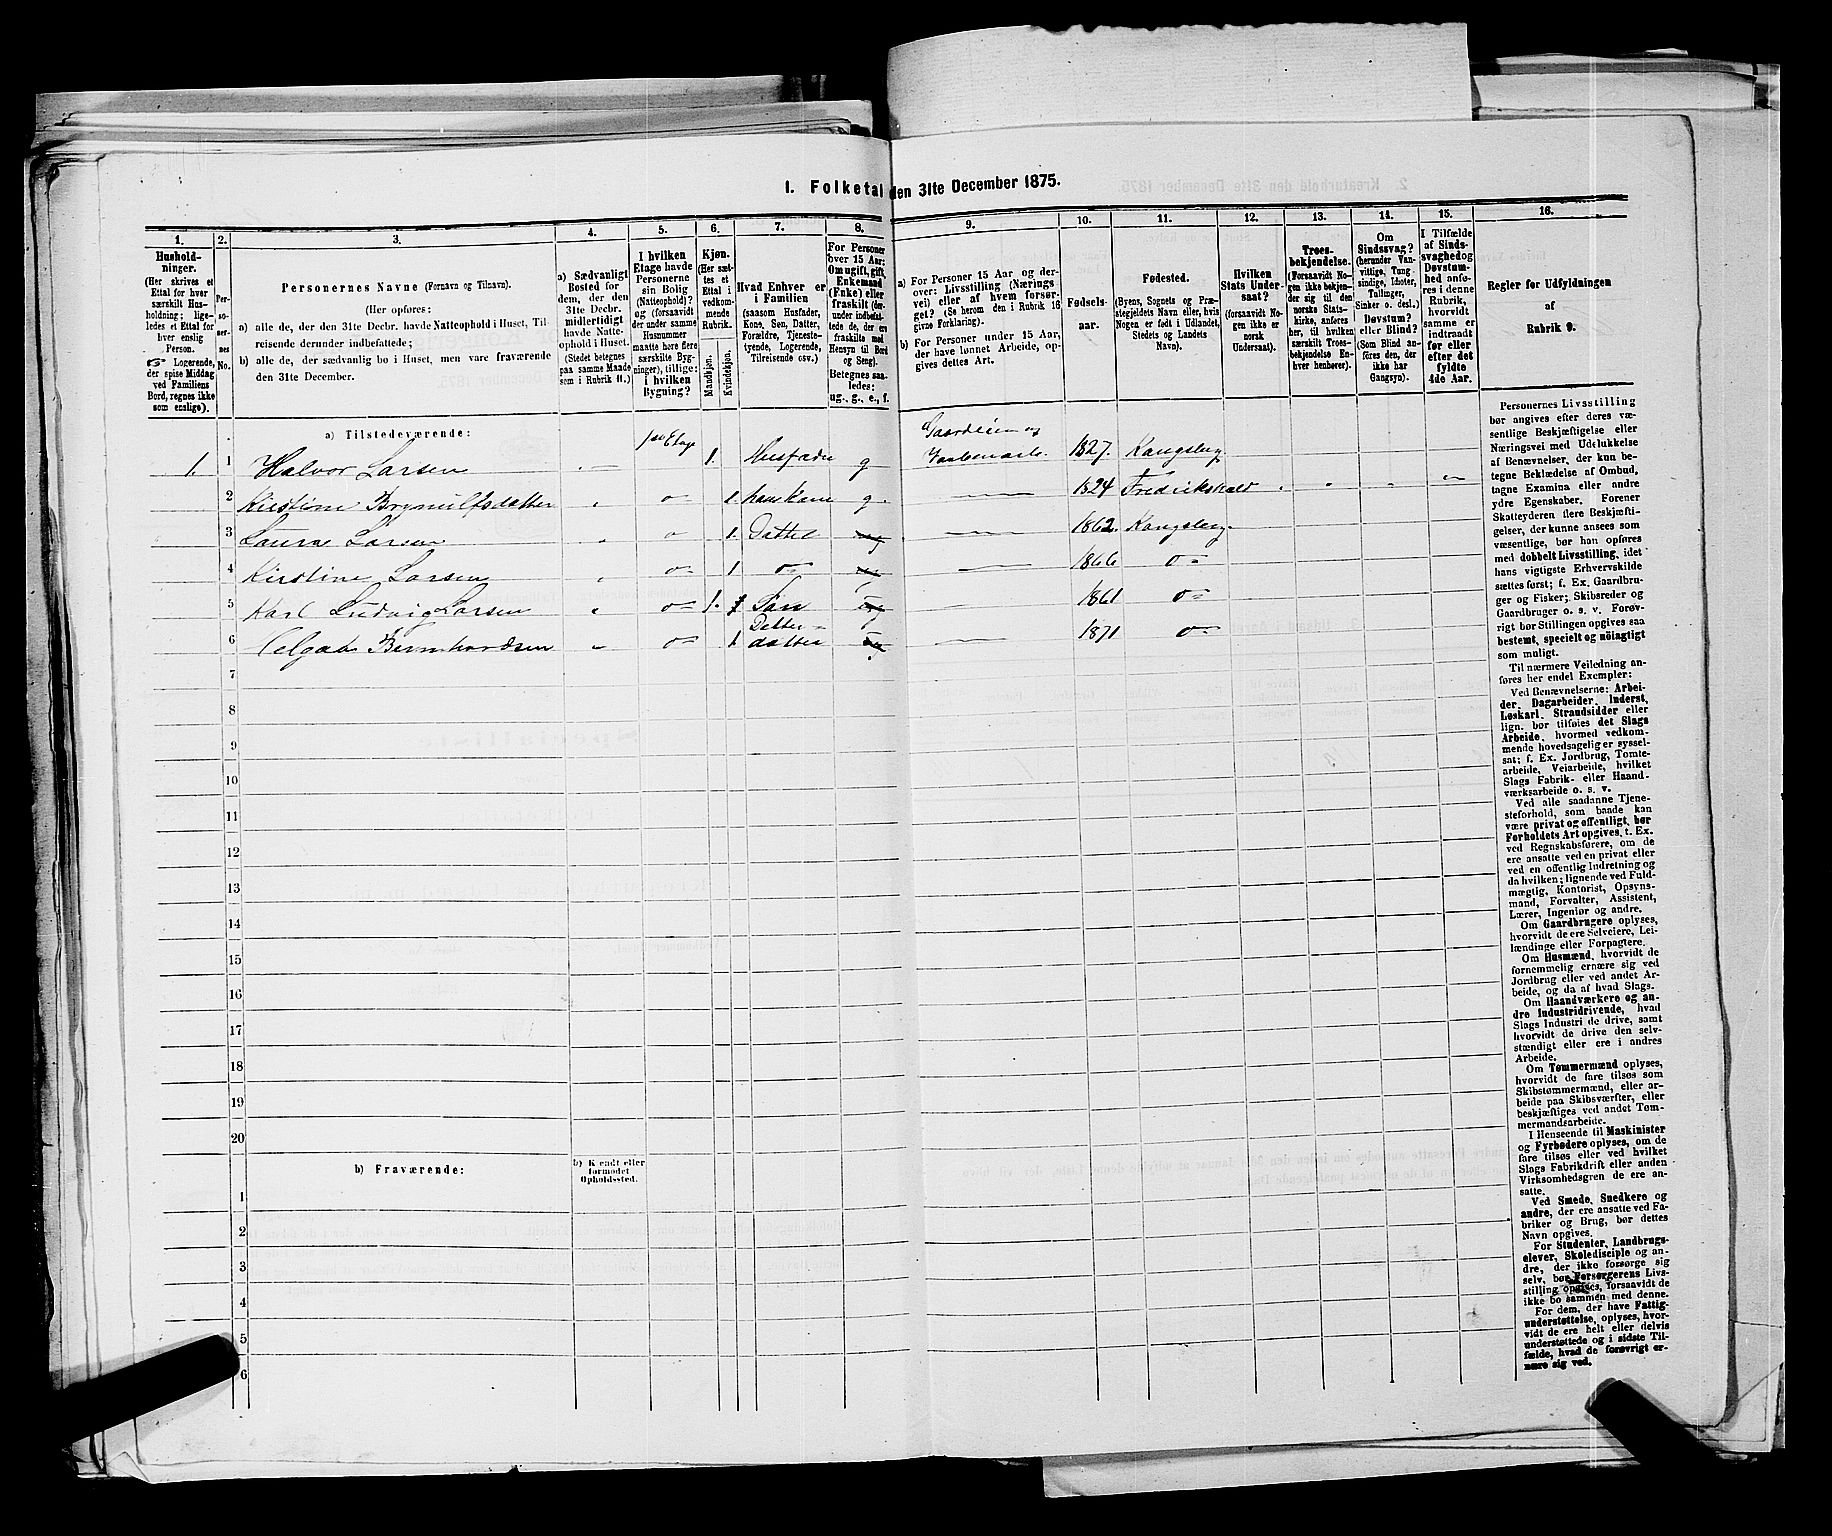 1. Folketal den 31te December 1875.
1.
2.
3.
4.
5.
6.
7.
8.
9.
10.
11.
12.
13.
14.
15.
16.
Hushold-
ninger.
(Her skrives et
Ettal for hver
særskilt Hus-
holdning; lige-
ledes et Ettal for
hver enslig
Person.
Logerende,
der spise Middag
ved Familiens
Bord, regnes ikke
som enslige).
Per-
so-
ner-
nes
No.
Personernes Navne (Fornavn og Tilnavn).
(Her opføres:
a) alle de, der den 31te Decbr. havde Natteophold i Huset, Til-
reisende derunder indbefattede;
b) alle de, der sædvanlig bo i Huset, men vare fraværende
den 31te December.
a) Sædvanligt
Bosted for
dem, der den
31te Decbr.
midlertidigt
havde Natte-
ophold i Huset.
(Stedet betegnes
paa samme Maade
som i Rubrik 11.)
I hvilken
Etage havde
Personerne
sin Bolig
(Natteophold)?
og (forsaavidt
der under samme
Husnummer
maatte høre flere
særskilte Byg-
ninger), tillige:
i hvilken
Bygning?
Kjøn.
(Her sæt-
tes et
Ettal i
vedkom-
mende
Rubrik.
Mandkjøn.
Kvindekjøn.
Hvad Enhver er
i Familien
(saasom Husfader,
Kone, Søn, Datter,
Forældre, Tjeneste-
tyende, Logerende,
Tilreisende osv.)
For Personer
over 15 Aar:
Om ugift, gift,
Enkemand
(Enke) eller
fraskilt (der-
under indbefat-
tede de, der ere
fraskilte med
Hensyn til Bord
og Seng).
Betegnes saa-
ledes:
ug., g., e., f.
a) For Personer 15 Aar og der-
over: Livsstilling (Nærings-
vei) eller af hvem forsør-
get? (Se herom den i Rubrik 16
givne Forklaring).
b) For Personer under 15 Aar,
der have lønnet Arbeide, op-
gives dettes Art.
Fødsels-
aar.
Fødested.
(Byens, Sognets og Præ-
stegjeldets Navn eller, hvis
Nogen er født i Udlandet,
Stedets og Landets
Navn).
Hvilken
Stats Under-
saat?
(forsaavidt No-
gen ikke er
norsk
Undersaat).
Troes-
bekjendelse.
(Forsaavidt No-
gen ikke bekjen-
der sig til den
norske Stats-
kirke, anføres
her, til hvilken
særskilt Troes-
bekjendelse En-
hver henhører).
Om
Sindssvag?
(herunder Van-
vittige, Tung-
sindige, Idioter,
Tullinger,
Sinker o. desl.)
Døvstum?
eller Blind?
(Som Blind an-
føres den, der
ikke har
Gangsyn).
I Tilfælde
af Sinds-
svaghed og
Døvstum-
hed anfø-
res i denne
Rubrik,
hvorvidt
samme er
indtraadt
før eller
efter det
fyldte
4de Aar.
Regler for Udfyldningen
af
Rubrik 9.
a) Tilstedeværende:
1 1 Halvor Larsen 1ste Etage 1. Husfader g Gaardeier og 1827. Kongsberg
2 Kirstine Brynulfsdatter 1 hans Kone g. 1824 Fredrikshald
3 Laura Larsen 1. Datter ug 1862. Kongsberg
4 Kirstine Larsen 1 1866
5 Karl Ludvig Larsen 1. Søn ug 1861
6 Bernhardsen 1. Datter-
datter ug 1871
7
8
9
10
11
12
13
14
15
16
17
18
19
20
b) Fraværende:
b) Kjendt eller
formodet
Opholdssted.
1
2
3
4
5
6
Personernes Livsstilling
bør angives efter deres væ-
sentlige Beskjæftigelse eller
Næringsvei med Udelukkelse
af Benævnelser, der kun be-
tegne Beklædelse af Ombud,
tagne Examina eller andre
ydre Egenskaber. Forener
Skatteyderen flere Beskjæfti-
gelser, der kunne ansees som
væsentlige, bør han opføres
med dobbelt Livsstilling, idet
hans vigtigste Erhvervskilde
sættes først; f. Ex. Gaardbru-
ger og Fisker; Skibsreder og
Gaardbruger o. s. v. Forøv-
rigt bør Stillingen opgives saa
bestemt, specielt og nøiagtigt
som muligt.
Til nærmere Veiledning an-
føres her endel Exempler:
Ved Benævnelserne: Arbei-
der, Dagarbeider, Inderst,
Løskarl, Strandsidder eller
lign. bør tilføies det Slags
Arbeide, hvormed vedkom-
mende hovedsagelig er syssel-
sat; f. Ex. Jordbrug, Tomte-
arbeide, Veiarbeide, hvilket
Slags Fabrik- eller Haand-
værksarbeide o. s. v.
Ved alle saadanne Tjene-
steforhold, som baade kan
være privat og offentligt, bør
Forholdets Art opgives, t. Ex.
ved Regnskabsførere, om de
ere ansatte ved en privat eller
ved en offentlig Indretning og
da hvilken; lignende ved Fuld-
mægtig, Kontorist, Opsyns-
mand, Forvalter, Assistent,
Lærer, Ingeniør og andre.
Om Gaardbrugere oplyses,
hvorvidt de ere Selveiere, Lei-
lændinge eller Forpagtere.
Om Husmænd, hvorvidt de
fornemmelig ernære sig ved
Jordbrug eller ved andet Ar-
beide, og da af hvad Slags.
Om Haandværkere og an-
dre Industridrivende, hvad
Slags Industri de drive, samt
hvorvidt de drive den selv-
stændigt eller ere i andres
Arbeide.
Om Tømmermænd oplyses,
hvorvidt de fare tilsøs som
Skibstømmermænd, eller ar-
beide paa Skibsværfter, eller
beskjæftiges ved andet Tøm-
mermandsarbeide.
I Henseende til Maskinister
og Fyrbødere oplyses, om de
fare tilsøs eller ved hvilket
Slags Fabrikdrift eller anden
Virksomhedsgren de ere an-
satte.
Ved Smede, Snedkere og
andre, der ere ansatte ved Fa-
briker og Brug, bør dettes
Navn opgives.
For Studenter, Landbrugs-
elever, Skoledisciple og an-
dre, der ikke forsørge sig
selv, bør Forsørgerens Livs-
stilling opgives, forsaavidt de
ikke bo sammen med denne.
For dem, der have Fattig-
understøttelse, oplyses, hvor-
vidt de ere helt eller delvis
understøttede og i sidste Til-
fælde, hvad de forøvrigt er-
nære sig ved.